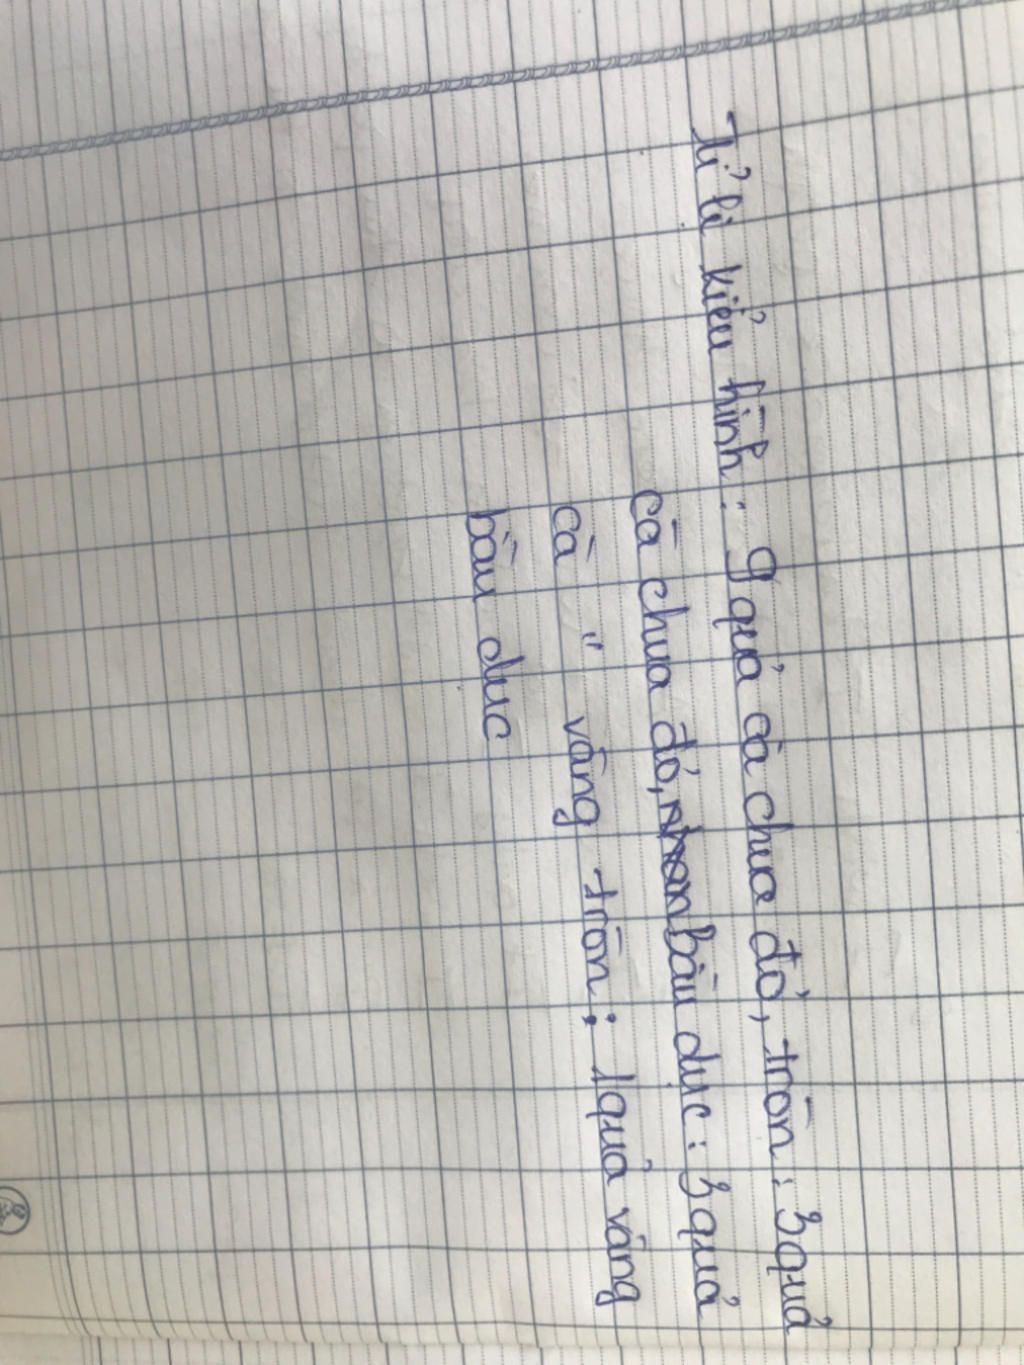 Tỉ lệ kiểu hình : 9 quả cà chua đỏ, tròn : 3 quả
cà chua đỏ, bầu dục : 3 quả
cà " vàng tròn ; 1 quả vàng
bầu dục